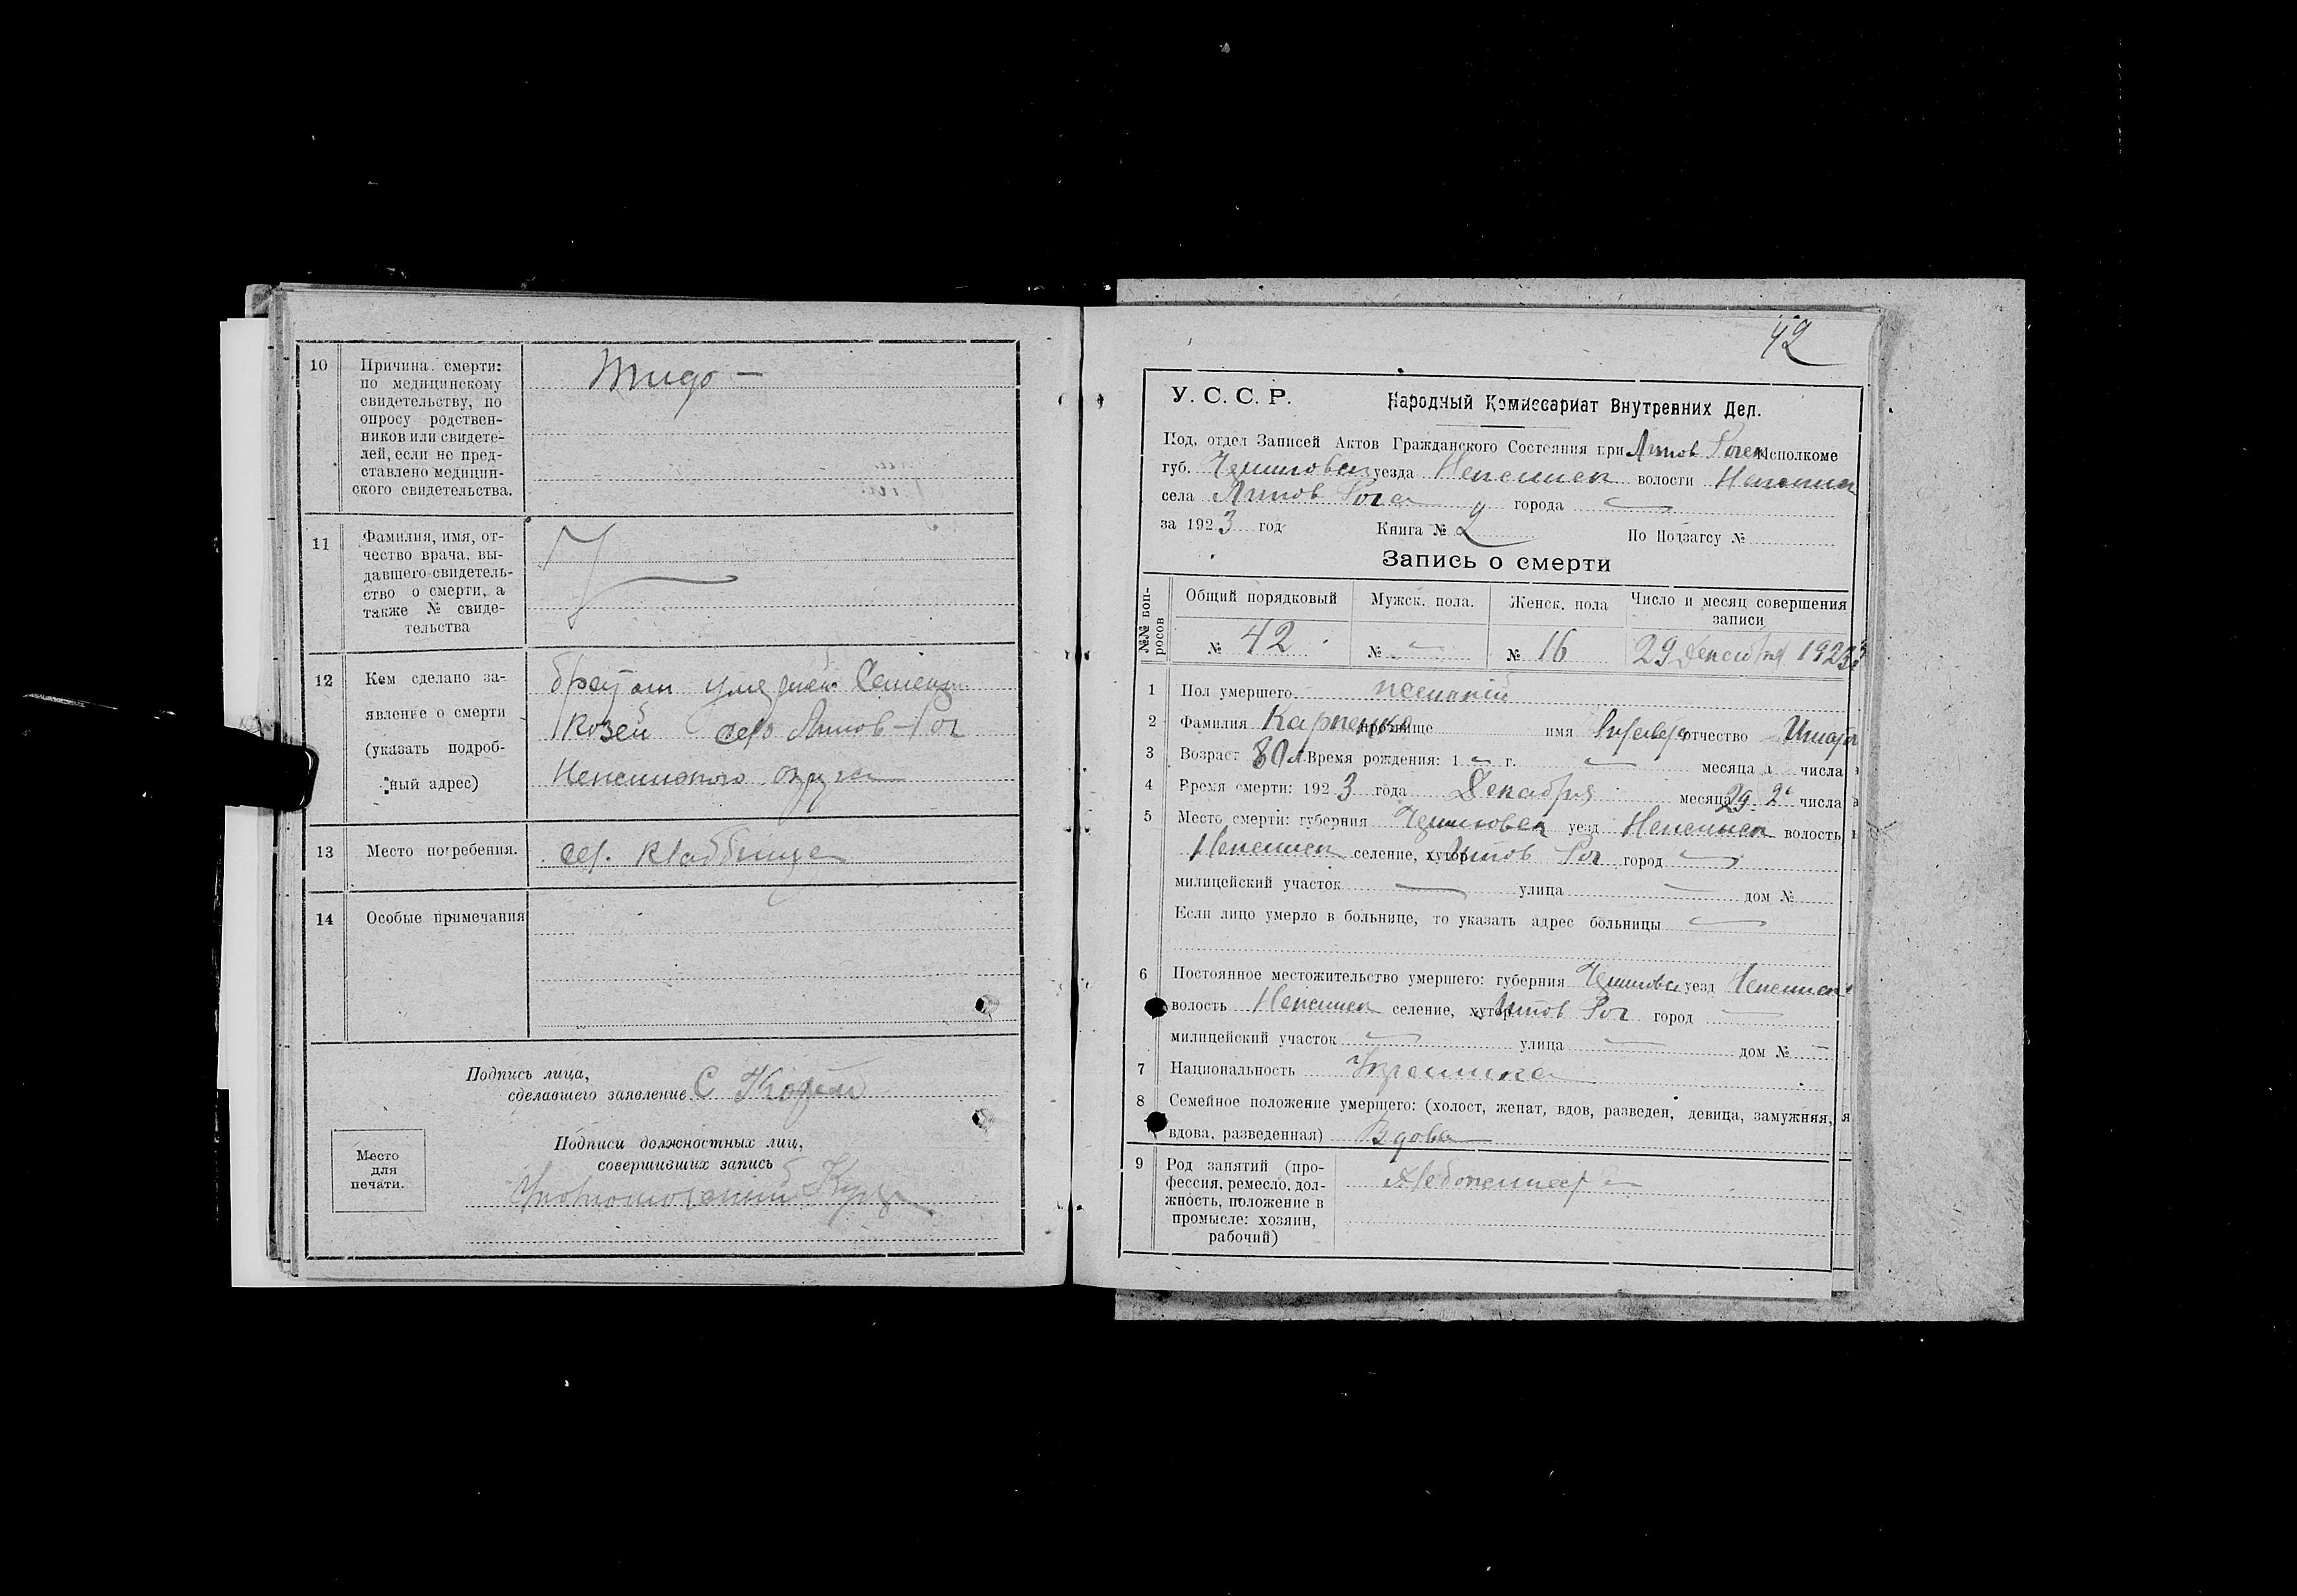 10 Причина смерти:
по медицинскому
свидетельству, по
опросу родствен-
ников или свидете-
лей, если не пред-
ставлено медицин-
ского свидетельства.
11 Фамилия, имя, от-
чество врача, вы-
давшего свидетель-
ство о смерти, а
также № свиде-
тельства
12 Кем сделано за-
явление о смерти
(указать подроб-
ный адрес)
Козел село Липов-Рог
Неженского округа
13 Место погребения.
14 Особые примечания
Подпись лица,
сделавшего заявление С
Подписи должностных лиц,
совершивших запись
Место
для
печати.
42
У. С. С. Р. Народный Комиссариат Внутренних Дел.
Под. отдел Записей Актов Гражданского Состояния при Липов Рогск Исполкоме
губ. Черниговск уезда Неженск волости Неженск
села Липов Рога города —
за 1923 год Книга № 2 По Подзагсу №
Запись о смерти
№№ воп-
росов
Общий порядковый Мужск. пола. Женск. пола Число и месяц совершения
записи
№ 42 № — № 16 29 Декабря 1923
1 Пол умершего женский
2 Фамилия Карпенко прозвище имя отчество
3 Возраст 80 л. Время рождения: 1 — г. — месяца числа
4 Время смерти: 1923 года Декабря месяца 29 числа
5 Место смерти: губерния Черниговск уезд Неженск волость
Неженск селение, хутор Липов Рог город —
милицейский участок — улица — дом №
Если лицо умерло в больнице, то указать адрес больницы —
6 Постоянное местожительство умершего: губерния Черниговск уезд Неженск
волость Неженск селение, хутор Липов Рог город —
милицейский участок — улица — дом № —
7 Национальность Украинка
8 Семейное положение умершего: (холост, женат, вдов, разведен, девица, замужняя,
вдова, разведенная) Вдова
9 Род занятий (про-
фессия, ремесло, дол-
жность, положение в
промысле: хозяин,
рабочий)